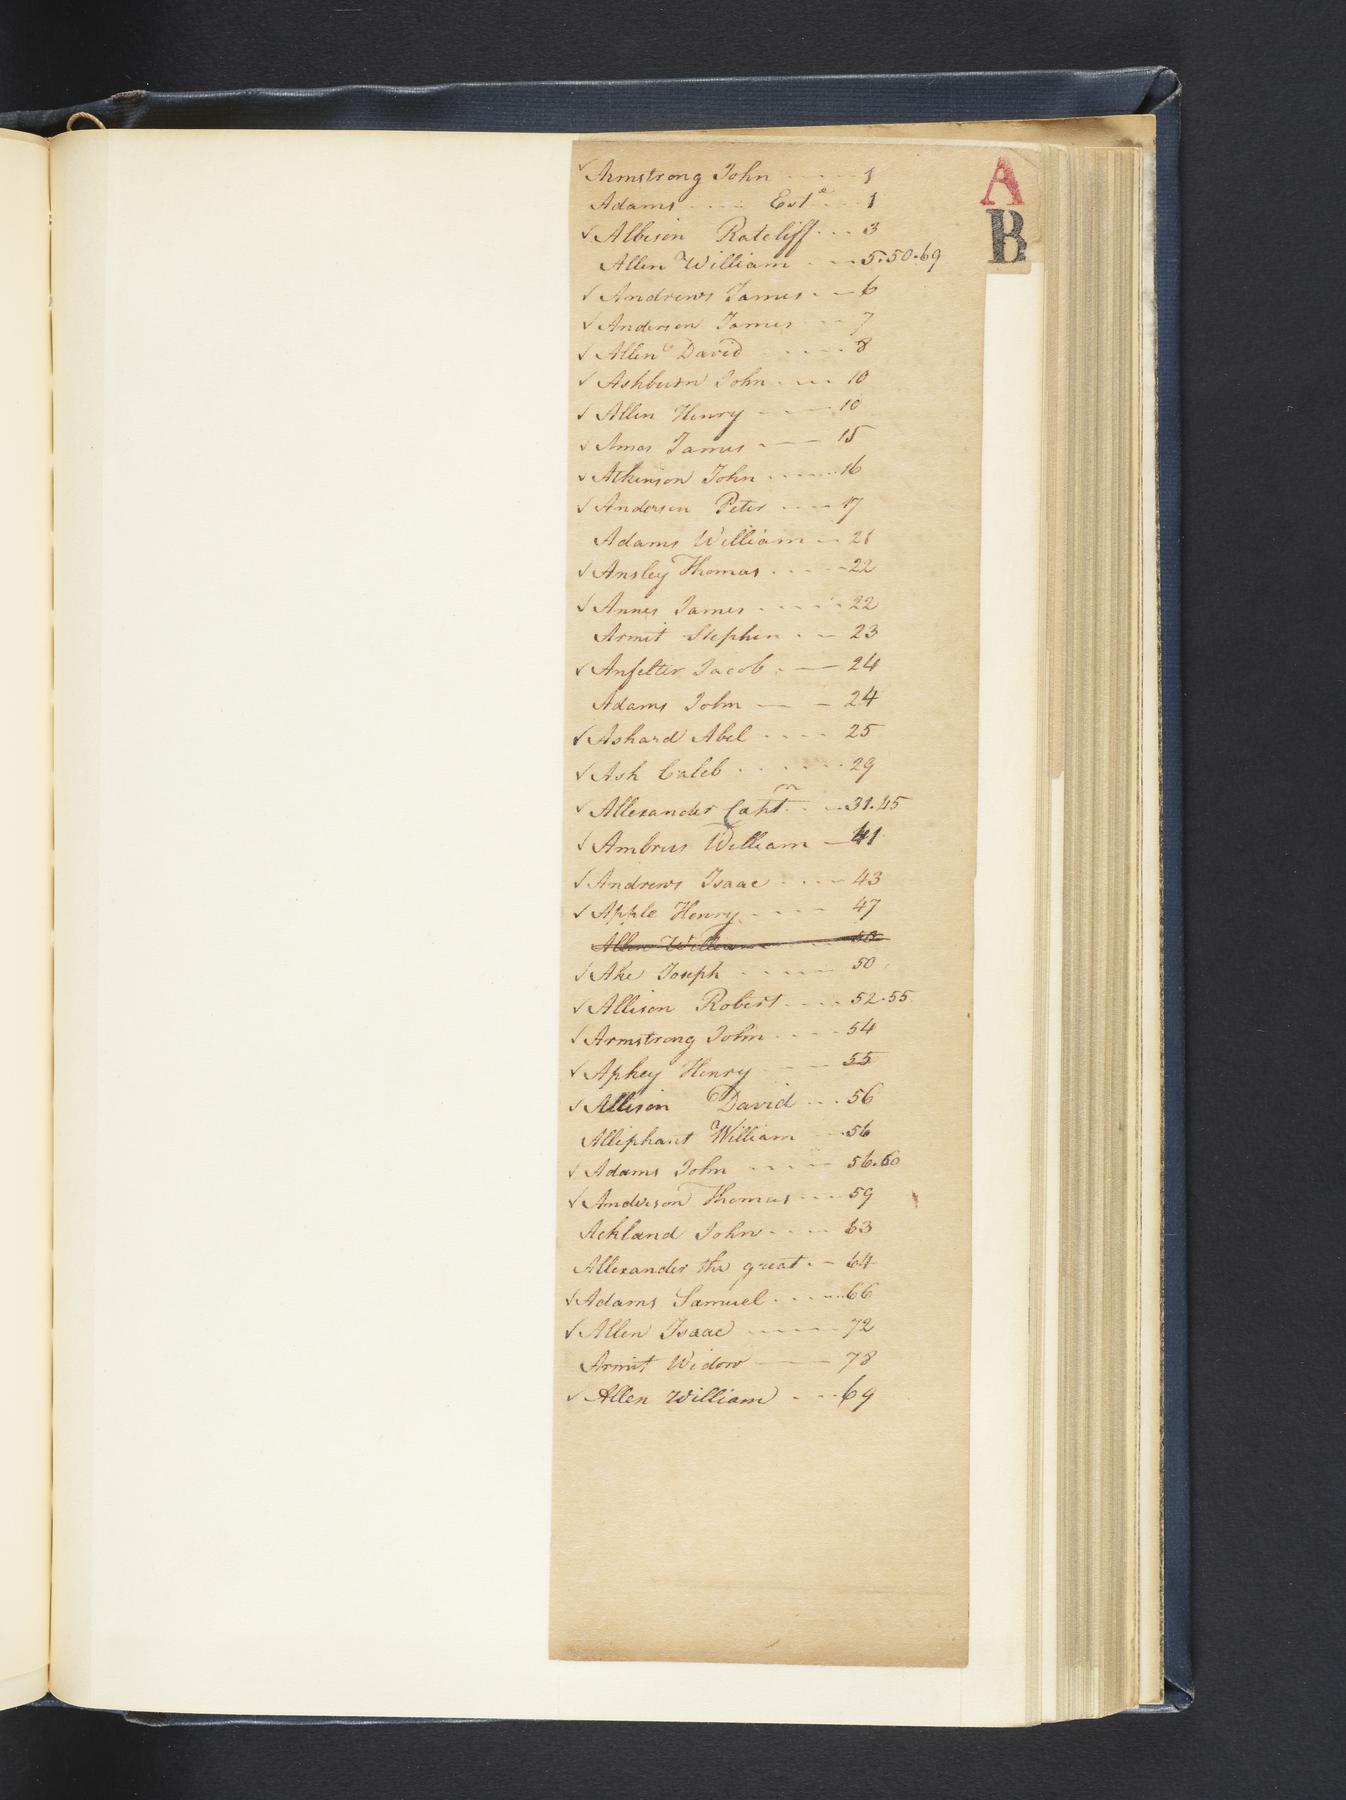 ✓ Armstrong John ---- 1
Adams ---- Est^e --- 1
✓ Albison Ratcliff --- 3
Allen William --- 5.50.69
✓ Andrews James -- 6
✓ Anderson James --- 7
✓ Allen David ---- 8
✓ Ashburn John --- 10
✓ Allen Henry --- 10
✓ Amos James --- 15
✓ Atkinson John ---- 16
✓ Anderson Peter --- 17
Adams William -- 21
✓ Ansley Thomas ---- 22
✓ Annes James ---- 22
Armit Stephen -- 23
✓ Anfelter Jacob -- 24
Adams John -- 24
✓ Ashard Abel ---- 25
✓ Ash Caleb ---- 29
✓ Allexander Capt^n --- 31.45
✓ Ambrus William - 41
✓ Andrews Isaac --- 43
✓ Apple Henry ---- 47
Allen William
✓ Ake Joseph ---- 50
✓ Allison Robert ---- 52.55
✓ Armstrong John ---- 54
✓ Apkey Henry --- 55
✓ Allison David --- 56
Alliphant William --- 56
✓ Adams John ---- 56.60
✓ Anderson Thomas --- 59
Ackland John ---- 63
Allexander the great -- 64
✓ Adams Samuel ---- 66
✓ Allen Isaac ---- 72
Armit Widow --- 78
✓ Allen William --- 69
A
B